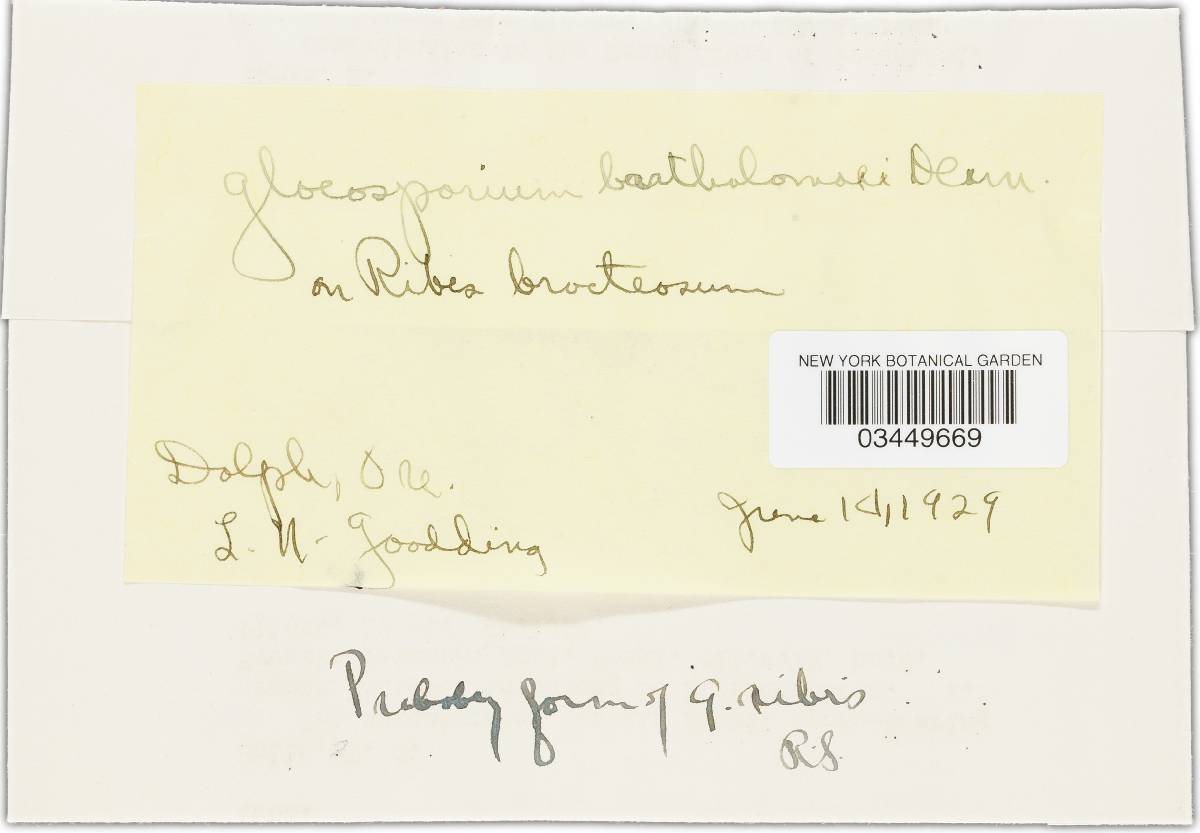 Gloeosporium bartholomaei Dearn.
on Ribes bracteosum
NEW YORK BOTANICAL GARDEN
03449669
Dolph, Ore.
L. N. Goodding
June 14, 1929
Probably form of G. ribis
R.S.